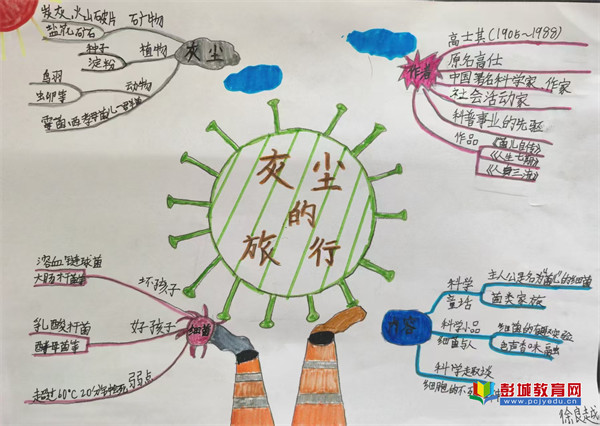 炭灰,火山碎片 矿物
盐花矿石
种子 植物
淀粉
灰尘
鸟羽 动物
虫卵等
霉菌
作者
高士其(1905~1988)
原名高仕
中国著名科学家、作家
社会活动家
科普事业的先驱
作品
《菌儿自传》
《人生七期》
《人身三流》
灰尘
的
旅行
溶血链球菌
大肠杆菌等
坏孩子
乳酸杆菌
酵母菌等
好孩子
细菌
超过60℃20分钟
弱点
内容
科学
童话
主人公是名为"菌儿"的细菌
菌类家族
科学小品
细菌与人
细菌的
色声香味
科学趣谈
细胞的不
彭城教育网
www.pcjyedu.cn
徐良越